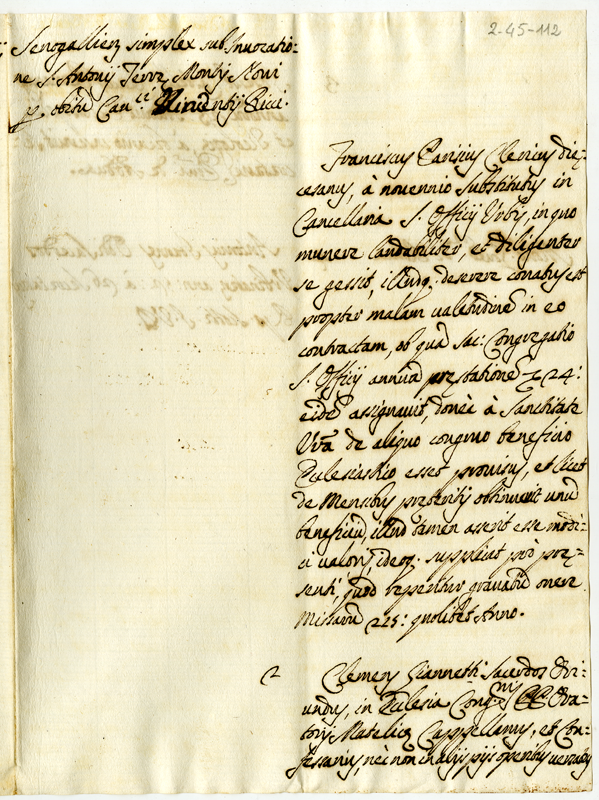 2-45-112
Senogallien simplex sub Invocatio=
ne S. Antonij Terræ Montis Novi
p obitũ Can.ci Ricci.
Franciscus Parisius Clericus diæ=
cesanus, à novennio substitutus in
Cancellaria S. Officij Urbis, in quo
munere laudabiliter, et diligenter
se gessit, illudq; deserere conatus est
propter malam valetudinẽ in eo
contractam, ob quã Sac: Congregatio
S. Officij annuã prestationẽ 24:
eidẽ assignavit, donec à Sanctitate
Vrã de aliquo congruo beneficio
Ecclesiastico esset provisus, et licet
de Mensibus preteritis obtinuerit unũ
beneficiũ, illud tamen asserit esse modi=
ci valoris, ideoq; supplicat pro pre=
senti, quod reperitur gravatũ onere
Missarũ 225: quolibet Anno.
2
Clemens Giannetti Sacerdos Ori=
undus, in Ecclesia Congnis Ora=
torij Matelicæ Cappellanus, et Con=
fessarius, nec non in alijs pijs operibus versatus